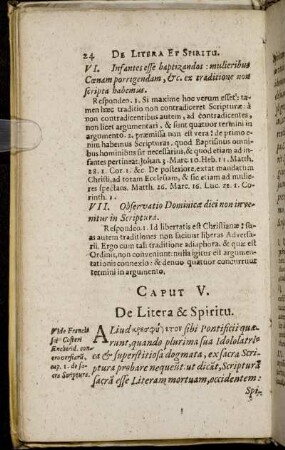 24 DE LITERA ET SPIRITU.
VI. Infantes esse baptizandos: mulieribus
Cœnam porrigendam, &c. ex traditione non
scripta habemus.
Respondeo. 1. Si maxime hoc verum esset; ta
men hæc traditio non contradiceret Scripturæ: à
non contradicentibus autem, ad contradicentes,
non licet argumentari; & sunt quatuor termini in
argumento. 2. præmissa non est vera: de primo e
nim habemus Scripturas, quod Baptismus omni
bus hominibus sit necessarius, & quod etiam ad in
fantes pertineat. Johan. 3. Marc. 10. Heb. 11. Matth.
28. 1. Cor. 1. &c De posteriore, extat mandatum
Christi, ad totam Ecclesiam, & sic etiam ad mulie
res spectans. Matth. 26. Marc. 16. Luc. 22. 1. Co
rinth. 1.
VII. Observatio Dominicæ dici non inve
nitur in Scriptura.
Respondeo. 1. Id libertatis est Christianæ: su
as autem traditiones non faciunt liberas Adversa
rii. Ergo cum tali traditione adiaphora, & quæ est
Ordinis, non conveniunt: nulla igitur est argumen
tationis connexio: & denuo quatuor concurrunt
termini in argumento.
CAPUT V.
De Litera & Spiritu.
ALiud sibi Pontificii quæ
runt, quando plurima sua Idololatri
ca & superstitiosa dogmata, ex sacra Scri
ptura probare nequeunt: ut dicāt, Scripturā
sacrā esse Literam mortuam, occidentem:
Spi-
Vide Francis
ci Costeri
Enchirid. con
troversiarū,
cap. 1. de sa
cra Scriptura.